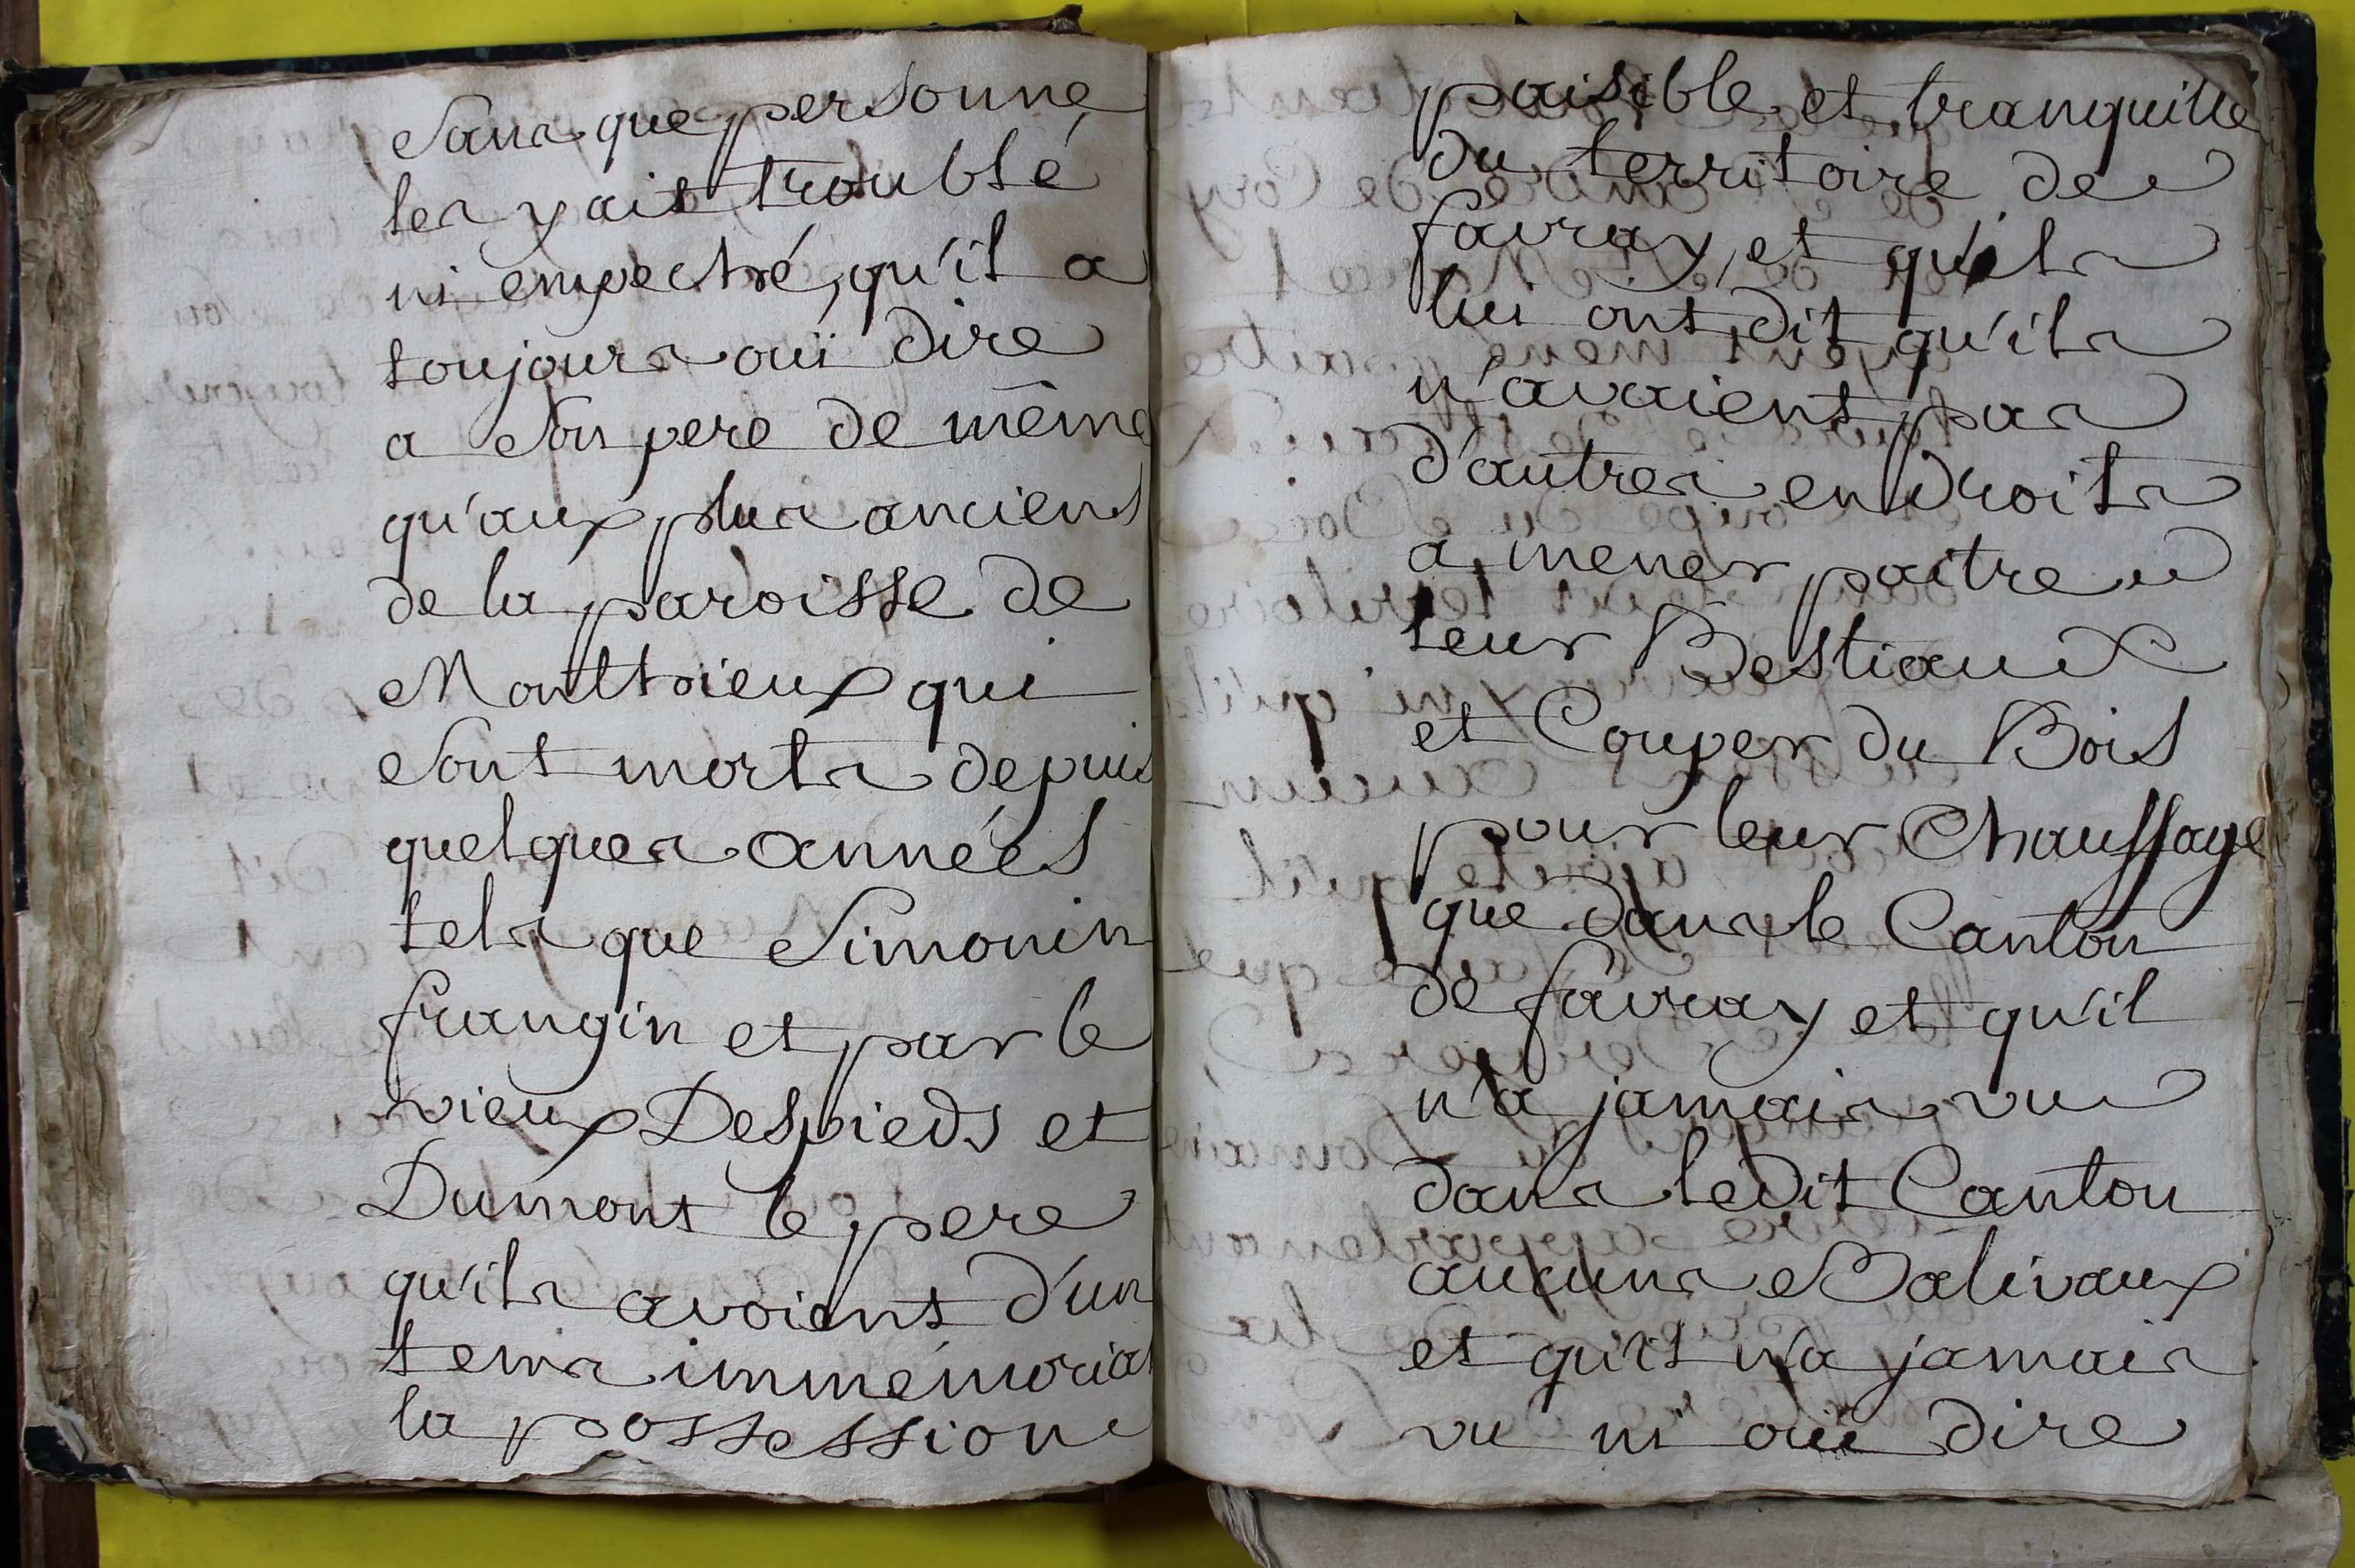 Sans que personne
les y ait troublé
ni empeché, qu'il a
toujours ouï dire
a Son pere de même
qu'aux plus anciens
de la paroisse de
Montbrieux qui
Sont morts depuis
quelques années
tels que Simonin
frangin et par le
vieux Despieds et
Dumont le pere
qu'ils avoient d'un
tems immémorial
la possession
paisible et tranquille
du territoire de
favray, et qu'ils
lui ont dit qu'ils
n'avaient pas
d'autres endroits
a mener paitre
leur Bestiaux
et Couper du Bois
pour leur Chauffage
que dans le Canton
de favray et qu'il
n'a jamais vu
dans ledit Canton
aucuns Balivaux
et qu'il n'a jamais
vu ni ouï dire